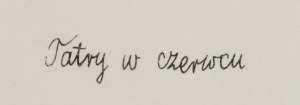 Tatry w czerwcu